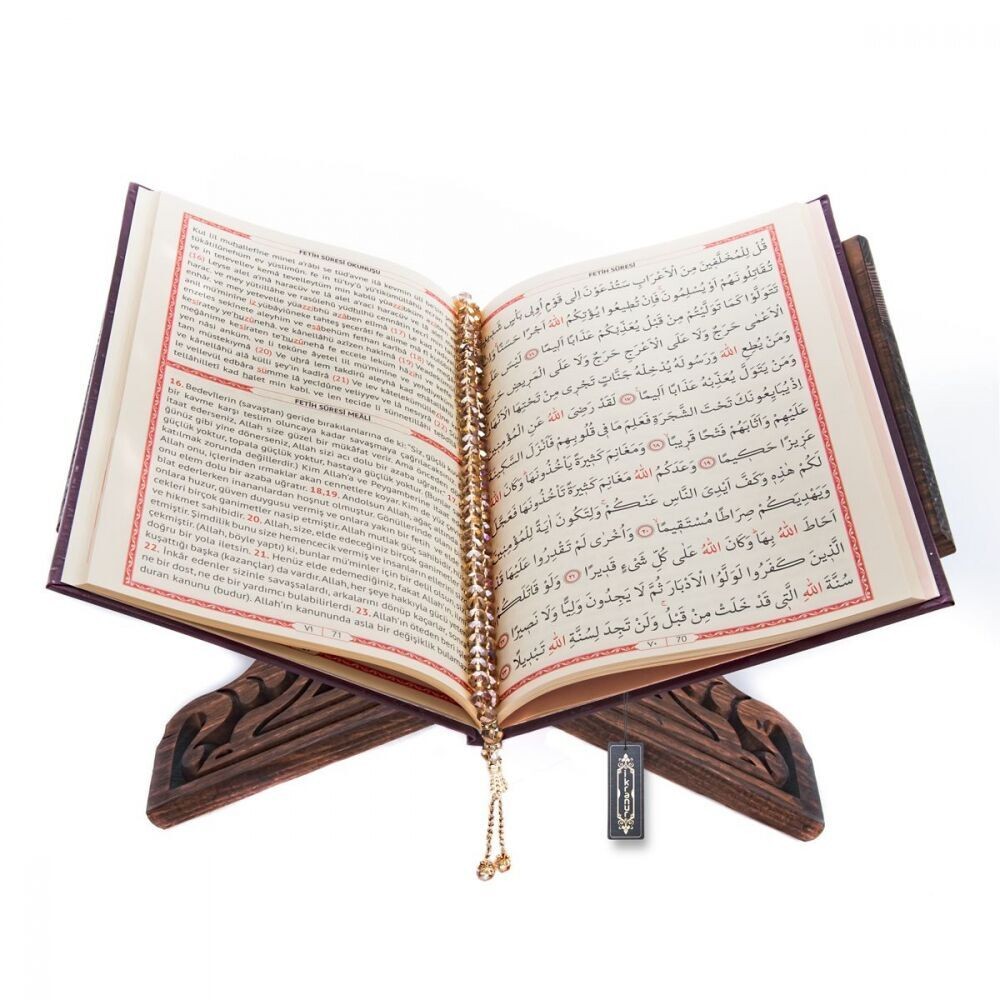 FETİH SÛRESİ OKUNUŞU
Kul lil muḥallefîne minel a'râbi se tüd'avne ilâ kavmin ulî be'sin
tükâtilûnehüm ev yüslimûn. fe in tü'tıy'û yü'tikümüllâhü
ve in tetevellev kemâ tevelleytüm min kablü yüazzibküm
(16) Leyse alel a'mâ haracüv ve lâ alel a'raci haracüv ve lâ alel
harac. ve mey yütıillâhe ve rasûlehû yüdhılhü cennâtin
enhâr. ve mey yetevelle yüazzibhü azâben elîmâ (17) Le kad
anil mü'minîne iz yübâyiûneke tahteş şecerâti fe alime mâ fî
enzeles sekînete aleyhim ve esâbehüm fethan karîbâ (18)
kesîratey ye'huzûnehâ. ve kânellâhü azîzen hakîmâ (19)
meğânime kesîraten te'huzûnehâ fe accele leküm hâzihî ve
tan nâsi anküm. ve li tekûne âyetel lil mü'minîne ve yehdiyeküm
müstekıymâ (20) Ve uḥrâ lem takdirû aleyhâ kad ehâtallâhü
kânellâhü alâ külli şey'in kadîrâ (21) Ve lev kâtelekümüllezîne
vellevül edbâra sümme lâ yecidûne veliyyev ve lâ nesıyrâ (22)
tellâhilletî kad halet min kabl. ve len tecide li sünnetillâhi
FETİH SÛRESİ MEÂLİ
16. Bedevîlerin (savaştan) geride bırakılanlarına de ki: "Siz, güçlü
bir kavme karşı teslim oluncaya kadar savaşmaya çağrılacaksınız.
itaat ederseniz, Allah size güzel bir mükâfat verir. Ama önceden
günüz gibi yine dönerseniz, Allah sizi acı dolu bir azaba uğratır.
güçlük yoktur, topala güçlük yoktur, hastaya güçlük yoktur. (Bunlar
katılmak zorunda değillerdir.) Kim Allah'a ve Peygamberine itaat
Allah onu, içlerinden ırmaklar akan cennetlere koyar. Kim de yüz
onu elem dolu bir azaba uğratır. 18,19. Andolsun Allah, ağaç altında
biat ederlerken inananlardan hoşnut olmuştur. Gönüllerinde
onlara huzur, güven duygusu vermiş ve onlara yakın bir fetih ve
cekleri birçok ganimetler nasip etmiştir. Allah, mutlak güç sahibidir,
ve hikmet sahibidir. 20. Allah, size, elde edeceğiniz birçok ganimetler
etmiştir. Şimdilik bunu size hemencecik vermiş ve insanların ellerini
çekmiştir. (Allah, böyle yaptı) ki, bunlar mü'minler için bir delil olsun
doğru bir yola iletsin. 21. Henüz elde edemediğiniz, fakat Allah'ın
kuşattığı başka (kazançlar) da vardır. Allah, her şeye hakkıyla gücü yetendir.
22. İnkâr edenler sizinle savaşsalardı, arkalarını dönüp kaçarlar, sonra
ne bir dost, ne de bir yardımcı bulabilirlerdi. 23. Allah'ın öteden beri
duran kanunu (budur). Allah'ın kanununda asla bir değişiklik bulamazsın.
٧١ 71
FETİH SÛRESİ
قُلْ لِلْمُخَلَّفِينَ مِنَ الْاَعْرَابِ سَتُدْعَوْنَ اِلٰى قَوْمٍ اُو۬لِي بَأْسٍ
تُقَاتِلُونَهُمْ اَوْ يُسْلِمُونَۚ فَاِنْ تُطِيعُوا يُؤْتِكُمُ اللّٰهُ اَجْرًا حَسَنًاۚ وَاِنْ
تَتَوَلَّوْا كَمَا تَوَلَّيْتُمْ مِنْ قَبْلُ يُعَذِّبْكُمْ عَذَابًا اَلِيمًا ﴿١٦﴾ لَيْسَ
الْاَعْمٰى حَرَجٌ وَلَا عَلَى الْاَعْرَجِ حَرَجٌ وَلَا عَلَى الْمَرِيضِ
وَمَنْ يُطِعِ اللّٰهَ وَرَسُولَهُ يُدْخِلْهُ جَنَّاتٍ تَجْرِي مِنْ تَحْتِهَا الْاَنْهَارُۚ
وَمَنْ يَتَوَلَّ يُعَذِّبْهُ عَذَابًا اَلِيمًا ﴿١٧﴾ لَقَدْ رَضِيَ اللّٰهُ عَنِ الْمُؤْمِنِينَ
اِذْ يُبَايِعُونَكَ تَحْتَ الشَّجَرَةِ فَعَلِمَ مَا فِي قُلُوبِهِمْ فَاَنْزَلَ السَّكِينَةَ
عَلَيْهِمْ وَاَثَابَهُمْ فَتْحًا قَرِيبًا ﴿١٨﴾ وَمَغَانِمَ كَثِيرَةً يَأْخُذُونَهَاۜ وَكَانَ اللّٰهُ
عَزِيزًا حَكِيمًا ﴿١٩﴾ وَعَدَكُمُ اللّٰهُ مَغَانِمَ كَثِيرَةً تَأْخُذُونَهَا فَعَجَّلَ
لَكُمْ هٰذِهِ وَكَفَّ اَيْدِيَ النَّاسِ عَنْكُمْۚ وَلِتَكُونَ اٰيَةً لِلْمُؤْمِنِينَ
وَيَهْدِيَكُمْ صِرَاطًا مُسْتَقِيمًا ﴿٢٠﴾ وَاُخْرٰى لَمْ تَقْدِرُوا عَلَيْهَا قَدْ
اَحَاطَ اللّٰهُ بِهَاۜ وَكَانَ اللّٰهُ عَلٰى كُلِّ شَيْءٍ قَدِيرًا ﴿٢١﴾ وَلَوْ قَاتَلَكُمُ
الَّذِينَ كَفَرُوا لَوَلَّوُا الْاَدْبَارَ ثُمَّ لَا يَجِدُونَ وَلِيًّا وَلَا نَصِيرًا ﴿٢٢﴾
سُنَّةَ اللّٰهِ الَّتِي قَدْ خَلَتْ مِنْ قَبْلُۚ وَلَنْ تَجِدَ لِسُنَّةِ اللّٰهِ تَبْدِيلًا ﴿٢٣﴾
٧٠ 70
ikranur